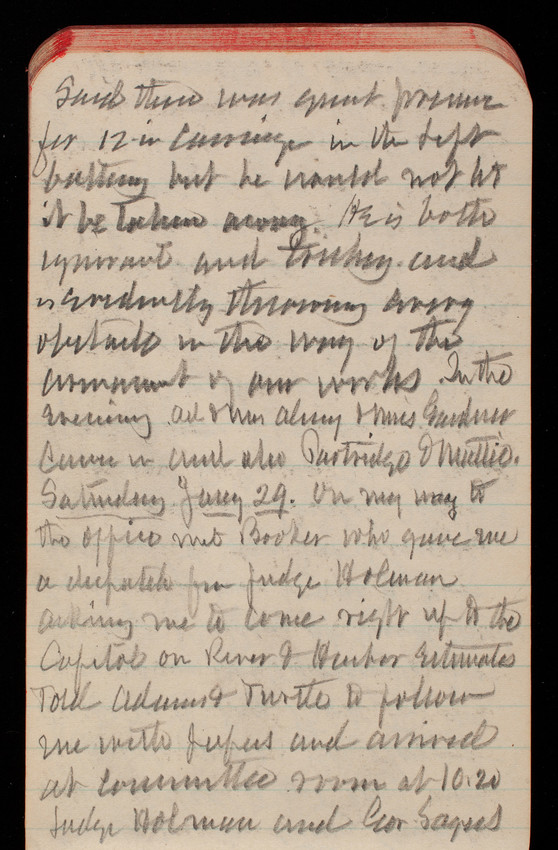 Said there was great pressure
for 12 in carriage in the left
battery but he would not let
it be taken away. He is both
ignorant and tricky and
is evidently throwing every
obstacle in the way of the
armament of our works. In the
Evening Ad & Mrs Alvey & Mrs Gardner
Came in and also Partridge & Mattie.
Saturday Jany 29. On my way to
the office met Booker who gave me
a dispatch from Judge Holman
asking me to come right up to the
Capitol on River & Harbor Estimates
Told Adams & Turtle to follow
me with papers and arrived
at Committee room at 10.20
Judge Holman and Gov Sayers